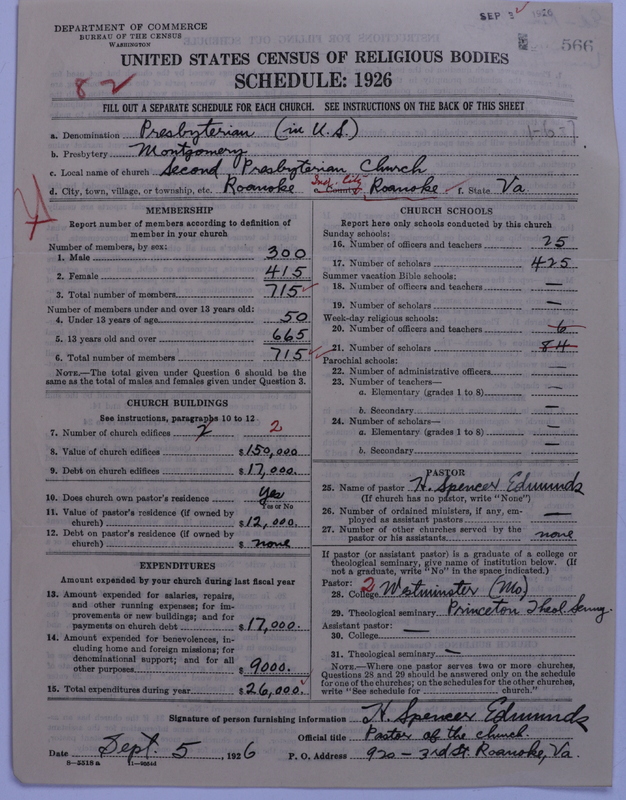 DEPARTMENT OF COMMERCE
BUREAU OF THE CENSUS
WASHINGTON
SEP 1926
566
UNITED STATES CENSUS OF RELIGIOUS BODIES
SCHEDULE: 1926
8 2
FILL OUT A SEPARATE SCHEDULE FOR EACH CHURCH. SEE INSTRUCTIONS ON THE BACK OF THIS SHEET
a. Denomination Presbyterian (in U.S.)
b. Presbytery Montgomery
c. Local name of church Second Presbyterian Church
d. City, town, village, or township, etc. Roanoke Ind. City e. County Roanoke f. State Va
MEMBERSHIP
Report number of members according to definition of member in your church
Number of members, by sex:
1. Male 300
2. Female 415
3. Total number of members 715
Number of members under and over 13 years old:
4. Under 13 years of age 50
5. 13 years old and over 665
6. Total number of members 715
NOTE.—The total given under Question 6 should be
same as the total of males and females given under Question 3.
CHURCH BUILDINGS
See instructions, paragraphs 10 to 12
7. Number of church edifices 2 2
8. Value of church edifices $150,000
9. Debt on church edifices $17,000.
10. Does church own pastor's residence Yes
Yes or No
11. Value of pastor's residence (if owned by
church) $12,000.
12. Debt on pastor's residence (if owned by
church) $ none
EXPENDITURES
Amount expended by your church during last fiscal year
13. Amount expended for salaries, repairs,
and other running expenses; for im-
provements or new buildings; and for
payments on church debt $17,000.
14. Amount expended for benevolences, in-
cluding home and foreign missions; for
denominational support; and for all
other purposes $9000.
15. Total expenditures during year $26,000.
CHURCH SCHOOLS
Report here only schools conducted by this church
Sunday schools:
16. Number of officers and teachers 25
17. Number of scholars 425
Summer vacation Bible schools:
18. Number of officers and teachers —
19. Number of scholars —
Week-day religious schools:
20. Number of officers and teachers 6
21. Number of scholars 84
Parochial schools:
22. Number of administrative officers —
23. Number of teachers—
a. Elementary (grades 1 to 8) —
b. Secondary —
24. Number of scholars—
a. Elementary (grades 1 to 8) —
b. Secondary —
PASTOR
25. Name of pastor H. Spencer Edmunds
(If church has no pastor, write "None")
26. Number of ordained ministers, if any, em-
ployed as assistant pastors —
27. Number of other churches served by the
pastor or his assistants none
If pastor (or assistant pastor) is a graduate of a college or
theological seminary, give name of institution below. (If
not a graduate, write "No" in the space indicated.)
Pastor:
28. College 2 Westminster (Mo)
29. Theological seminary Princeton Theol. Semy.
Assistant pastor:
30. College —
31. Theological seminary —
NOTE.—Where one pastor serves two or more churches,
Questions 28 and 29 should be answered only on the schedule
for one of the churches; on the schedules for the other churches,
write "See schedule for church."
Signature of person furnishing information H. Spencer Edmunds
Official title Pastor of the church.
Date Sept. 5, 1926 P. O. Address 920 - 3rd St. Roanoke, Va.
8-5518 a